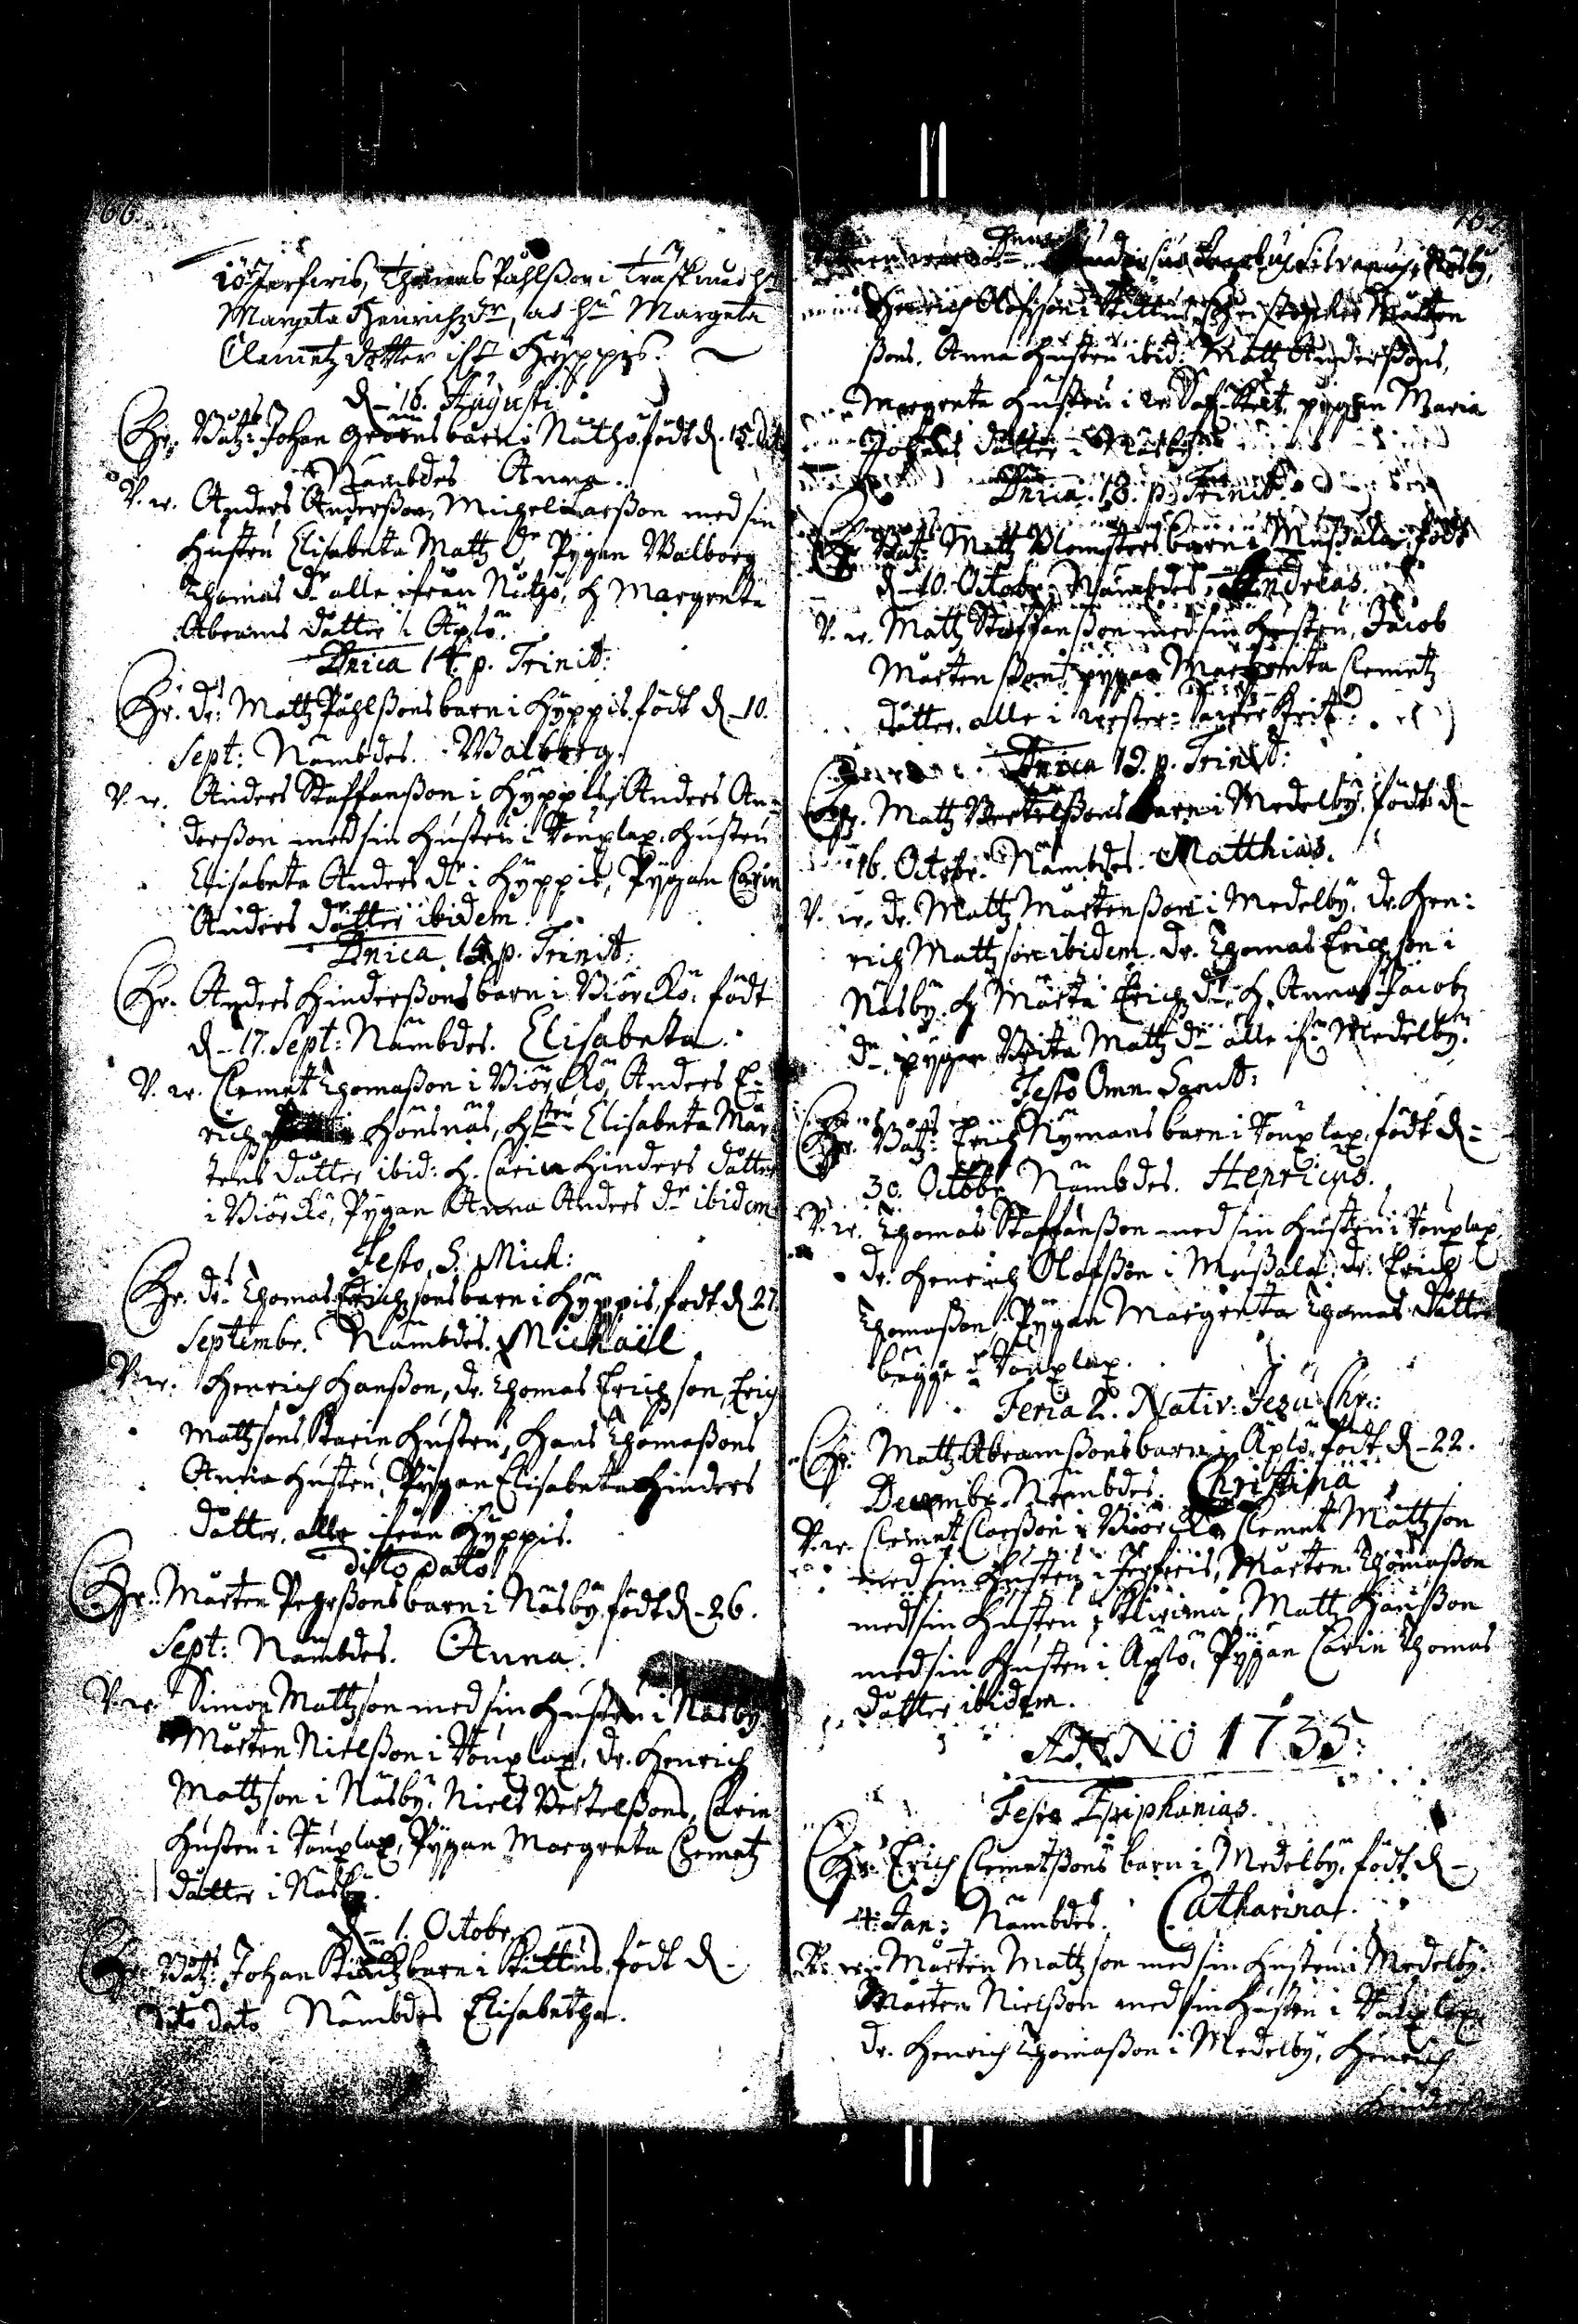 66.
i Jerfiris, Thomas Påhlßon i Träsk med h:
Margeta Henrichz Dr, as hu Margeta
Clemetz dotter ifr Hyppis.
d. 16. Augusti
Chr. Båtz: Johan Groens barn i Nåtho, födt d. 15. dito
Nämbdes Anna.
V. w. Anders Anderßon, Michel Larßon med sin
hustru Elisabeta Mattz dr Pygan Walborg
Thomas dr alle ifrån Nåtho, h Margreta
Abrams dåtter i Äplö.
Dnica 14. p. Trinit:
Chr. dr: Mattz Påhlßons barn i Hyppis, födt d. 10.
Sept: Nämbdes. Walborg.
V. w. Anders Staffanßon i Hyppis, Anders An=
derßon med sin hustru i Touplax, hustru
Elisabeta Anders dr i Hyppis, Pygan Carin
Anders dåtter ibidem.
Dnica 14 p. Trinit:
Chr. Anders Hinderßons barn i Biörckö, födt
d. 17. Sept: Nämbdes. Elisabeta.
V. w. Clemet Thomaßon i Biörckö, Anders E-
rich Hönsnäs, hstru Elisabeta Mår-
tens dåtter ibid: h. Carin Hinders dåtter
i Biörckö, Pygan Anna Anders dr ibidem
Festo S. Mich:
Chr. dr. Thomas Erichsons barn i Hyppis, födt d. 27
Septembr. Nämbdes. Michaël
V. w. Henrich Hanßon, dr. Thomas Erichson, Erich
Mattzsons Karin hustru, Hans Thomaßons
Anna hustru, Pygan Elisabeta Hinders
dåtter, alle ifrån Hyppis.
dito dato
Chr. Mårten Pehrßons barn i Näsby, födt d. 26.
Sept: Nämbdes. Anna.
V. w. Simon Mattzson med sin hustru i Näsby
Mårten Nielßon i Touplax, dr. Henrich
Mattzson i Näsby, Niels Bertelßons Carin
hustru i Touplax, Pygan Margreta Clemetz
dåtter i Näsby.
d. 1. Octobr.
Chr. Båtz: Johan barn i Kittuis, födt d.
dito dato Nämbdes Elisabetha.
Näsby,
Henrich Olofsson i Kittuis, Mårten
ßons. Anna hustru ibid: Mattz Anderßons,
Margreta hustru i pygan Maria
Johans dåtter i Näsby.
Dnica. 18. p. Trinit.
Chr. Båtz: Mattz Blomsters barn i Mußala, födt
d. 10. Octobr. Nämbdes, Andreas.
V. w. Mattz Staffanßon med sin hustru, Jacob
Mårtenßons pygan Margreta Clemetz
dåtter, alle i
Dnica 19. p. Trinit:
Chr. Mattz Bertelßons barn i Medelby, födt d.
16. Octobr. Nämbdes. Matthias.
V. w. dr. Mattz Mårtenßon i Medelby, dr. Hen=
rich Mattzson ibidem. dr. Thomas Erichson i
Näsby. h Märta Erichz dr, h. Anna Jacobz
dr pygan Brita Mattz dr alle ifr Medelby.
Festo Omn. Sanct:
Chr. Båtz: Erich Nymans barn i Touplax, födt d.
30. Octobr Nämbdes. Henricus.
V. w. Thomas Staffanßon med sin hustru i Touplax,
dr. Henrich Olofßon i Mußala, dr. Erich
Thomaßon Pygan Margreta Thomas dåtter
bägge i Touplax.
Feria 2. Nativ: Jezu Chr:
Chr. Mattz Abramßons barn i Äplö, födt d. 22.
Decembr. Nämbdes. Christina
V. w. Clemet Clarßon i Biörckö, Clemet Mattzson
med sin hustru i Jerfiris, Mårten Thomaßon
med sin hustru i Mattz Hanßon
med sin hustru i Äplö, Pygan Carin Thomas
dåtter ibidem.
ANNO 1735:
Festo Epiphanias.
Chr. Erich Clemetßons barn i Medelby, födt d.
4. Jan: Nämbdes. Catharina.
V. w. Mårten Mattzson med sin hustru i Medelby.
Mårten Nielßon med sin hustru i Touplax,
dr. Henrich Thomaßon i Medelby, Henrich